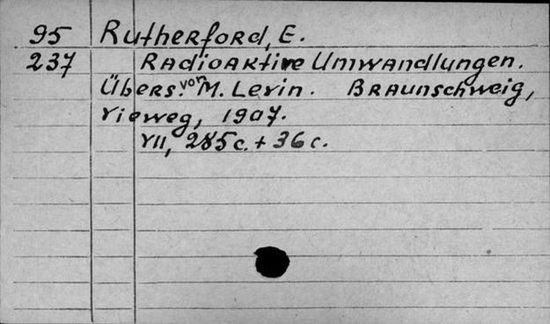 95 Rutherford, E.
237 Radioaktive Umwandlungen.
Übers. von M. Levin. Braunschweig,
Vieweg, 1907.
VII, 285c. + 36c.